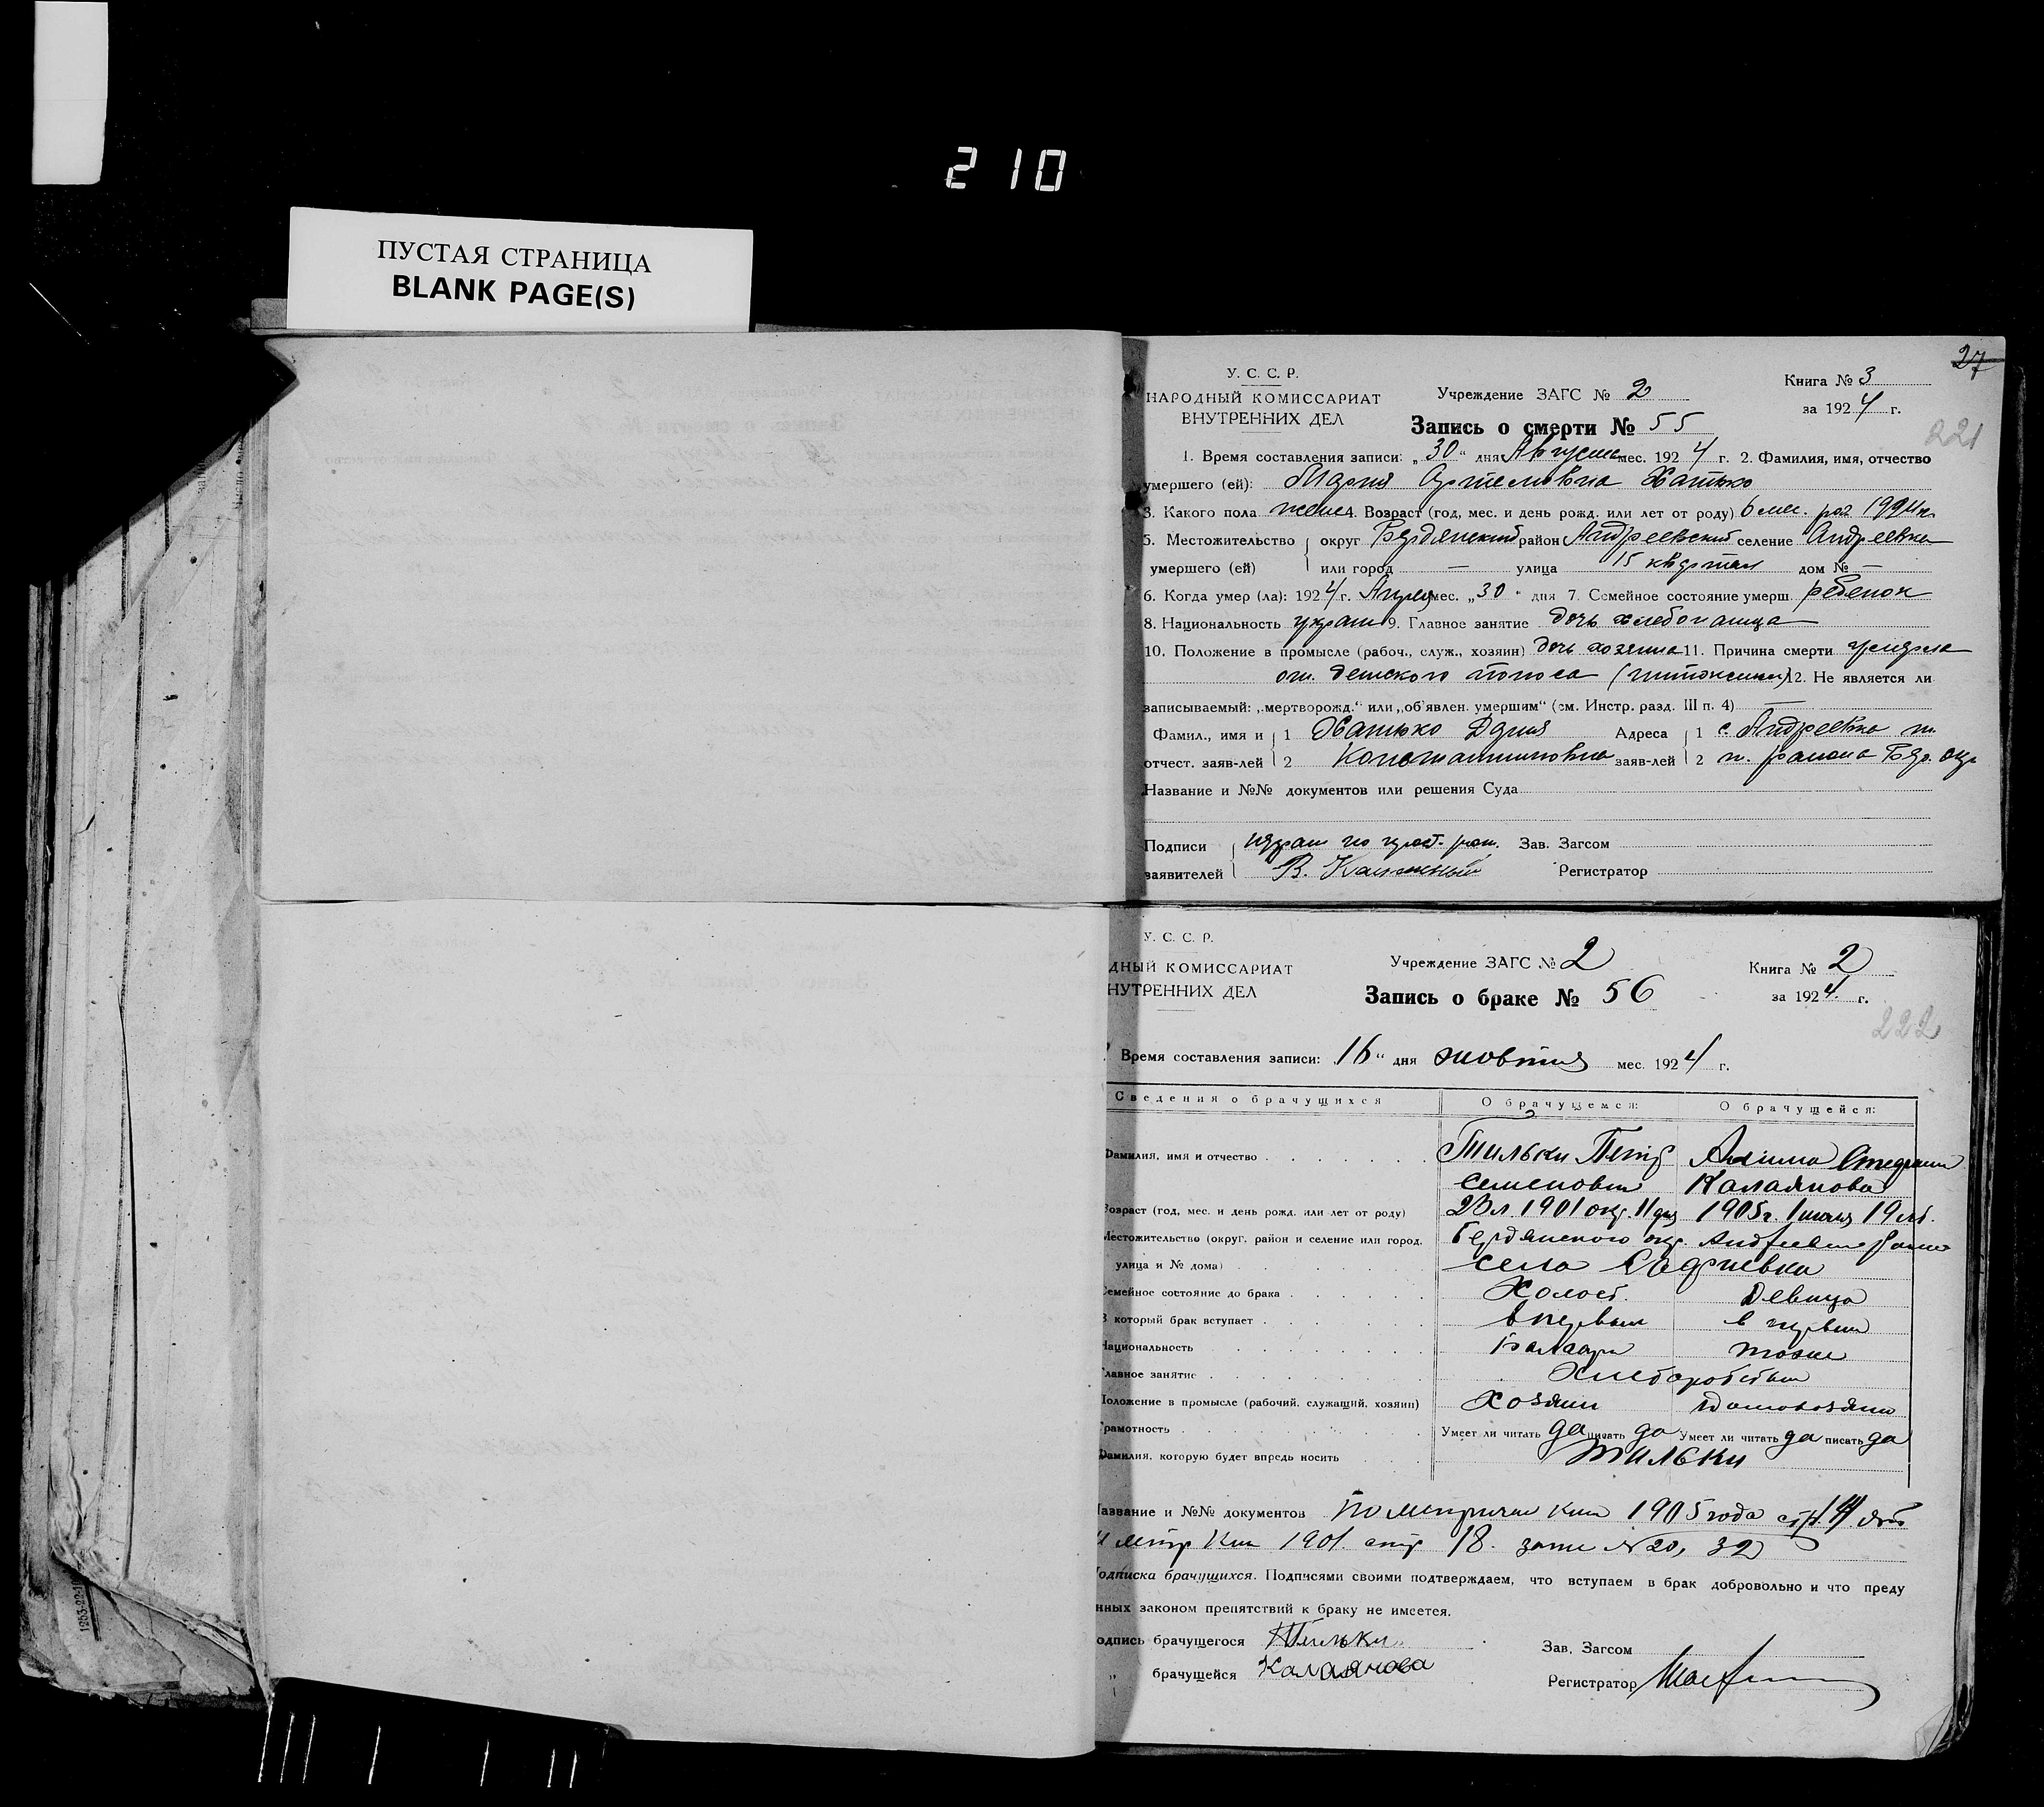 210
ПУСТАЯ СТРАНИЦА
BLANK PAGE(S)
27
У. С. С. Р.
НАРОДНЫЙ КОМИССАРИАТ
ВНУТРЕННИХ ДЕЛ
Учреждение ЗАГС № 2
Книга № 3
за 1924 г.
Запись о смерти № 55
221
1. Время составления записи: „30“ дня Августа мес. 1924 г. 2. Фамилия, имя, отчество
умершего (ей): Мария Артемовна Хатько
3. Какого пола жен 4. Возраст (год, мес. и день рожд. или лет от роду) 6 мес.
5. Местожительство округ Бердянский район Андреевский селение Андреевка
умершего (ей) или город — улица 15 квартал дом № —
6. Когда умер (ла): 1924 г. мес. „30“ дня 7. Семейное состояние умерш. ребенок
8. Национальность украин 9. Главное занятие дочь хлебопашца
10. Положение в промысле (рабоч., служ., хозяин) дочь хозяина 11. Причина смерти умерла
от детского поноса 12. Не является ли
записываемый: „мертворожд.“ или „об'явлен. умершим“ (см. Инстр. разд. III п. 4) —
Фамил., имя и 1 Хатько Дария Адреса 1 с. Андреевка т.
отчест. заяв-лей 2 Константиновна заяв-лей 2 п. района Бер. окр
Название и №№ документов или решения Суда
Подписи Зав. Загсом
заявителей В. Регистратор
У. С. С. Р.
ДНЫЙ КОМИССАРИАТ
НУТРЕННИХ ДЕЛ
Учреждение ЗАГС № 2
Книга № 2
за 1924 г.
Запись о браке № 56
222
Время составления записи: 16“ дня жовтня мес. 1924 г.
Сведения о брачущихся О брачущемся: О брачущейся:
Фамилия, имя и отчество Тильки Петр Анна
Семенович Калаянова
Возраст (год, мес. и день рожд. или лет от роду) 23 л. 1901 окт. 11 дня 1905 г. 1 19 лт.
Местожительство (округ, район и селение или город, Бердянского окр.
улица и № дома) села
Семейное состояние до брака Холост. Девица
В который брак вступает в первый в первый
Национальность Болгари тоже
Главное занятие Хлеборобство
Положение в промысле (рабочий, служащий, хозяин) Хозяин домохозяйка
Грамотность Умеет ли читать да писать да Умеет ли читать да писать да
Фамилия, которую будет впредь носить Тильки
Название и №№ документов По метрич кни 1905 года стр. 14
метр Кни 1901. стр 18. №20, 32
Подписка брачущихся. Подписями своими подтверждаем, что вступаем в брак добровольно и что преду
нных законом препятствий к браку не имеется.
одпись брачущегося Тильки Зав. Загсом
„ брачущейся Калаянова Регистратор
1253-22-10